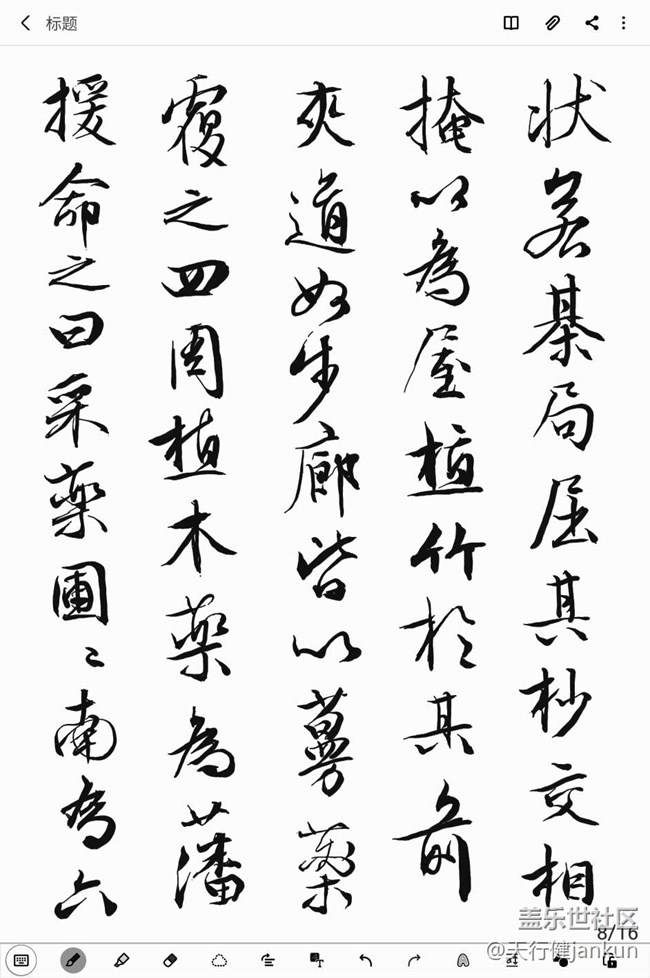 标题
状若棊局屈其杪交相
掩以為屋植竹於其前
夾道如步廊皆以蔓藥
覆之四周植木藥為藩
援命之曰采藥圃〻南為六
盖乐世社区
8/16
@天行健jankun